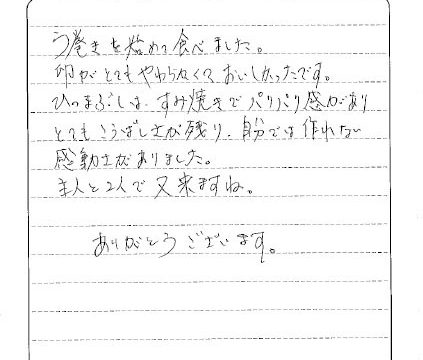 う巻きを始めて食べました。
卵がとてもやわらかくて、おいしかったです。
ひつまぶしは、すみ焼きでパリパリ感があり
とてもこうばしさが残り、自分では作れない
感動さがありました。
主人と2人で又来ますね。
ありがとうございます。